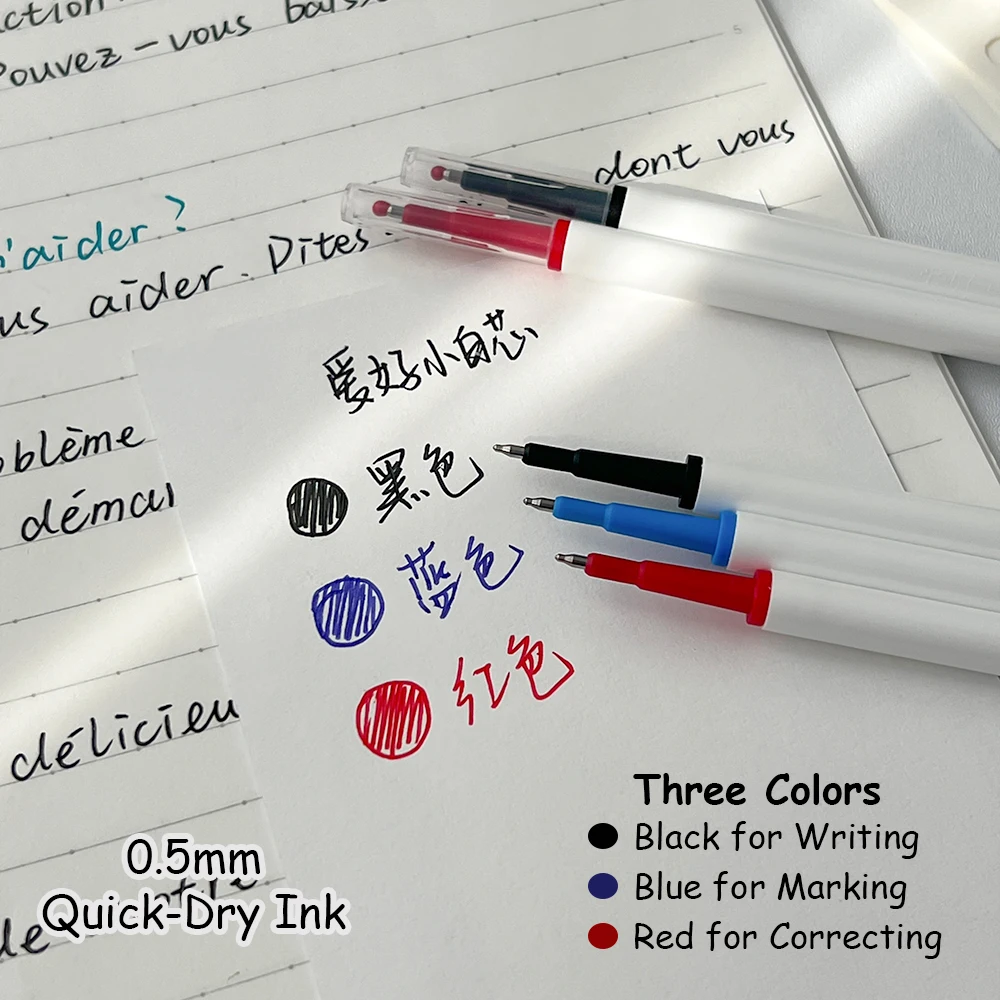 ction
Pouvez-vous baiss
5
dont vous
'aider?
us aider. Dites
爱好小白芯
oblème
démar
黑色
蓝色
红色
délicieu
Three Colors
Black for Writing
Blue for Marking
Red for Correcting
0.5mm
Quick-Dry Ink